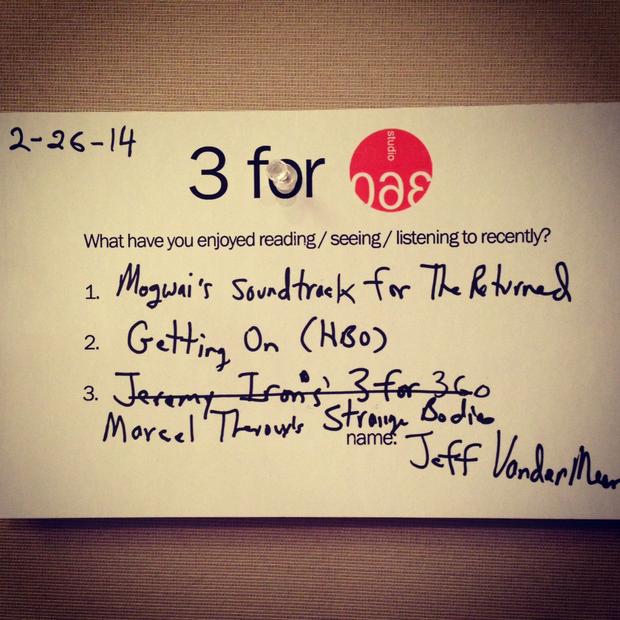 2-26-14
3 for
studio
360
What have you enjoyed reading / seeing / listening to recently?
1. Mogwai's Soundtrack for The Returned
2. Getting On (HBO)
3. Jeremy Irons' 3 for 360
Marcel Theroux's Strange Bodies
name: Jeff VanderMeer